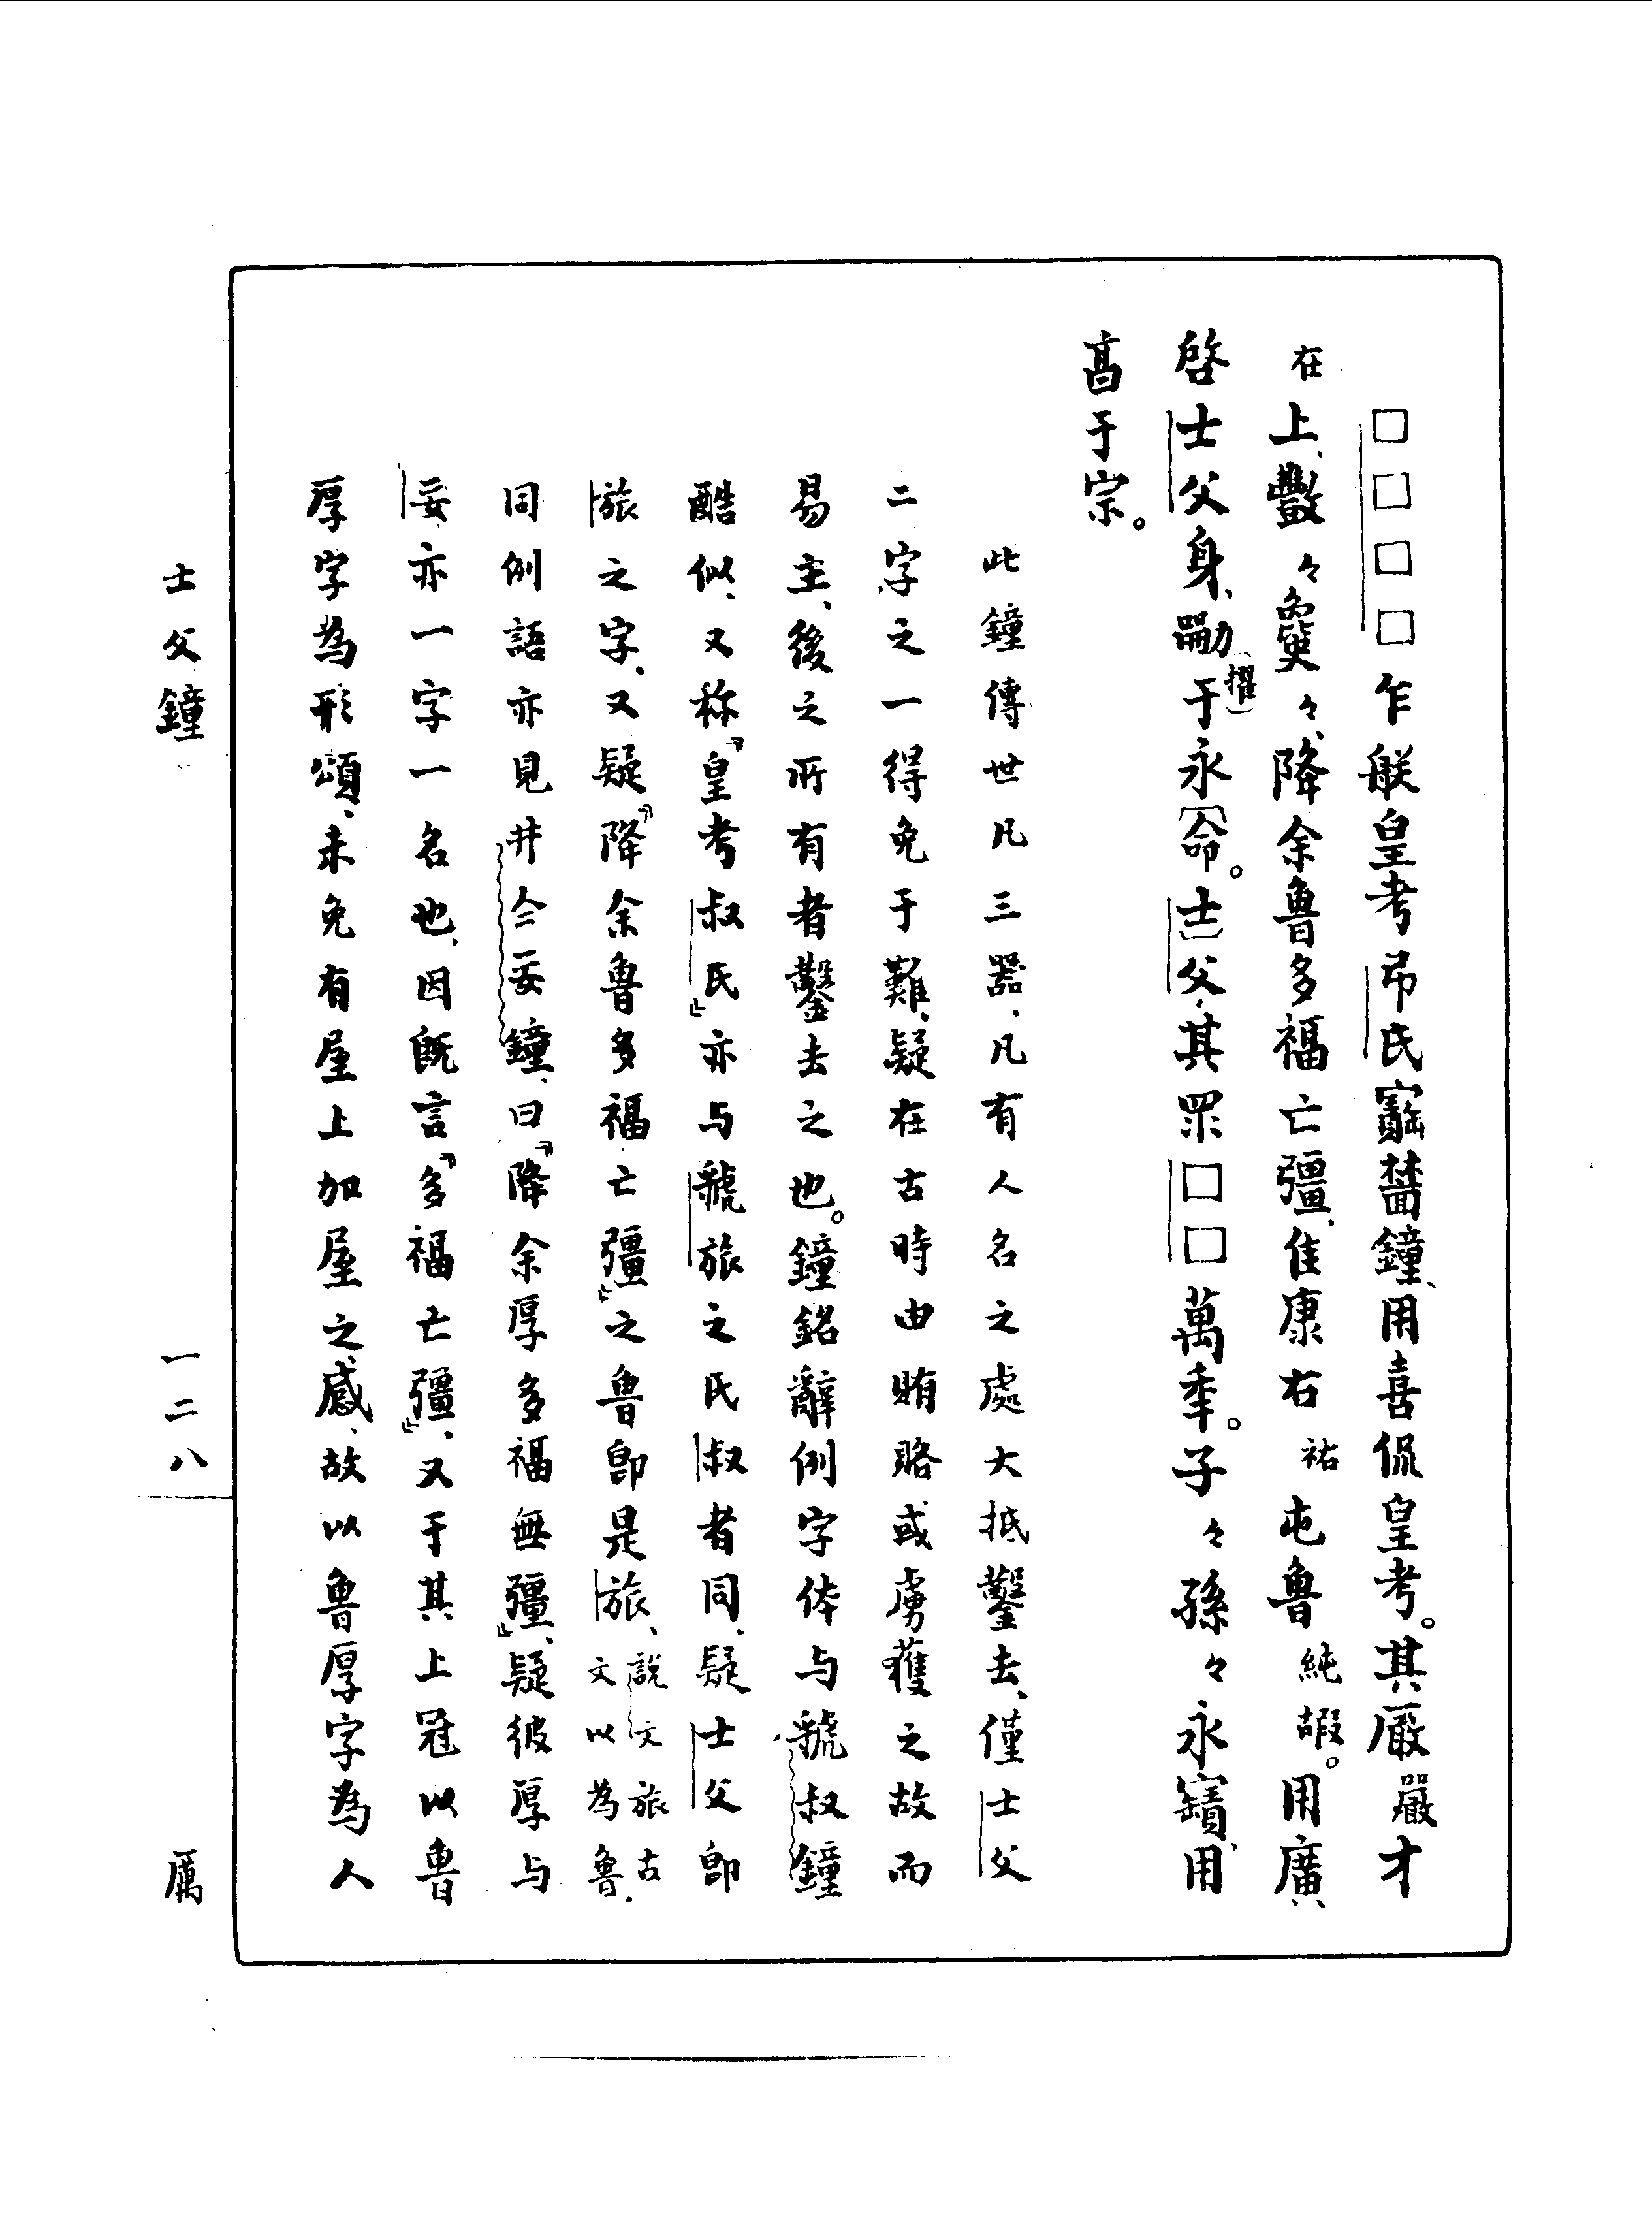 □□□□乍朕皇考弔氏寶鐘、用喜侃皇考。其厰嚴才
在上、數々𡚇々、降余魯多福亡彊、隹康右祐屯魯純嘏。用廣
啓士父身、勵于(擢)永〔命。士〕父其眔□□萬年。子々孫々永寶、用
亯于宗。
此鐘傳世凡三器、凡有人名之處大抵鑿去、僅士父
二字之一得免于難、疑在古時由賄賂或虜獲之故而
易主、後之所有者鑿去之也。鐘銘辭例字体与虢叔鐘
酷似、又称『皇考叔氏』亦与虢旅之氏叔者同、疑士父即
旅之字、又疑『降余魯多福亡彊』之魯即是旅、說文旅古文以為魯.
同例語亦見井仌妄鐘、曰『降余厚多福無彊』、疑彼厚与
妄亦一字一名也、因既言『多福亡彊』、又于其上冠以魯
厚字為形頌、未免有屋上加屋之感、故以魯厚字為人
士父鐘 一二八 厲